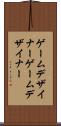 ゲームデザイ
ナーゲームデ
ザイナー